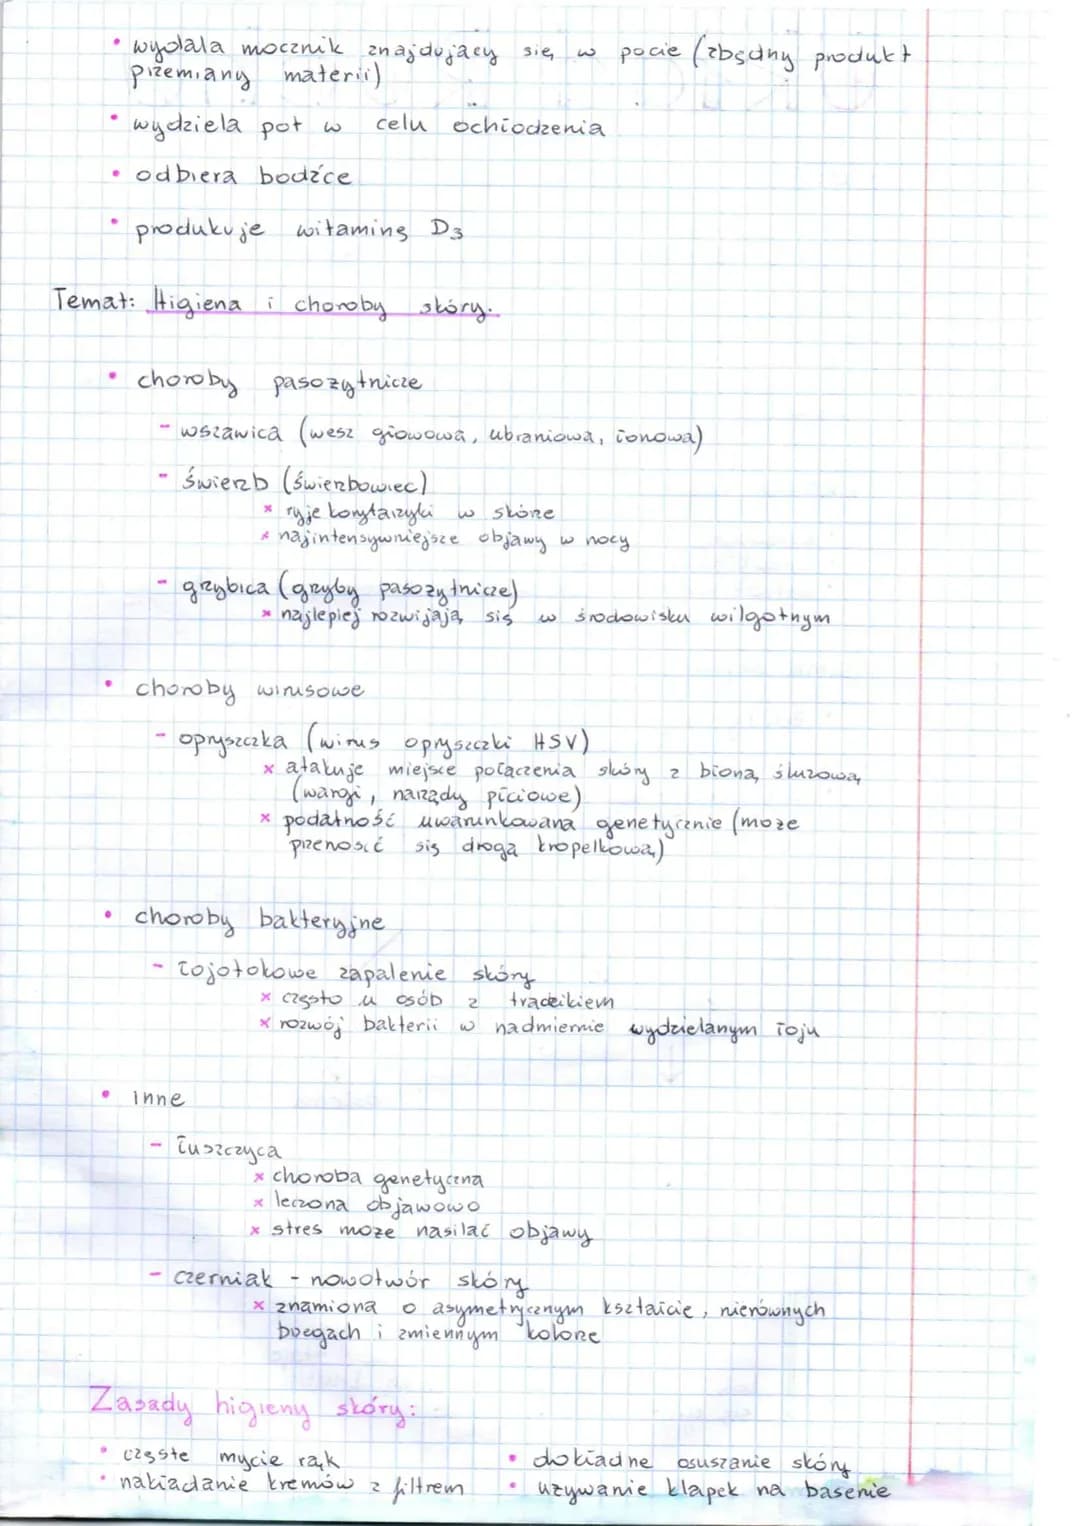 • wydala mocznik znajdujący się w pocie (zbędny produkt
przemiany materii)
• wydziela pot w celu ochłodzenia
• odbiera bodźce
• produkuje witaminę D3
Temat: Higiena i choroby skóry.
• choroby pasożytnicze
- wszawica (wesz głowowa, ubraniowa, łonowa)
- świerzb (świerzbowiec)
x ryje korytarzyki w skórze
x najintensywniejsze objawy w nocy
- grzybica (grzyby pasożytnicze)
x najlepiej rozwijają się w środowisku wilgotnym
• choroby wirusowe
- opryszczka (wirus opryszczki HSV)
x atakuje miejsce połączenia skóry z błoną śluzową
(wargi, narządy płciowe)
x podatność uwarunkowana genetycznie (może
przenosić się drogą kropelkową)
• choroby bakteryjne
- łojotokowe zapalenie skóry
x często u osób z trądzikiem
x rozwój bakterii w nadmiernie wydzielanym łoju
• inne
- łuszczyca
x choroba genetyczna
x leczona objawowo
x stres może nasilać objawy
- czerniak - nowotwór skóry
x znamiona o asymetrycznym kształcie, nierównych
brzegach i zmiennym kolorze
Zasady higieny skóry:
• częste mycie rąk
• nakładanie kremów z filtrem
• dokładne osuszanie skóry
• używanie klapek na basenie